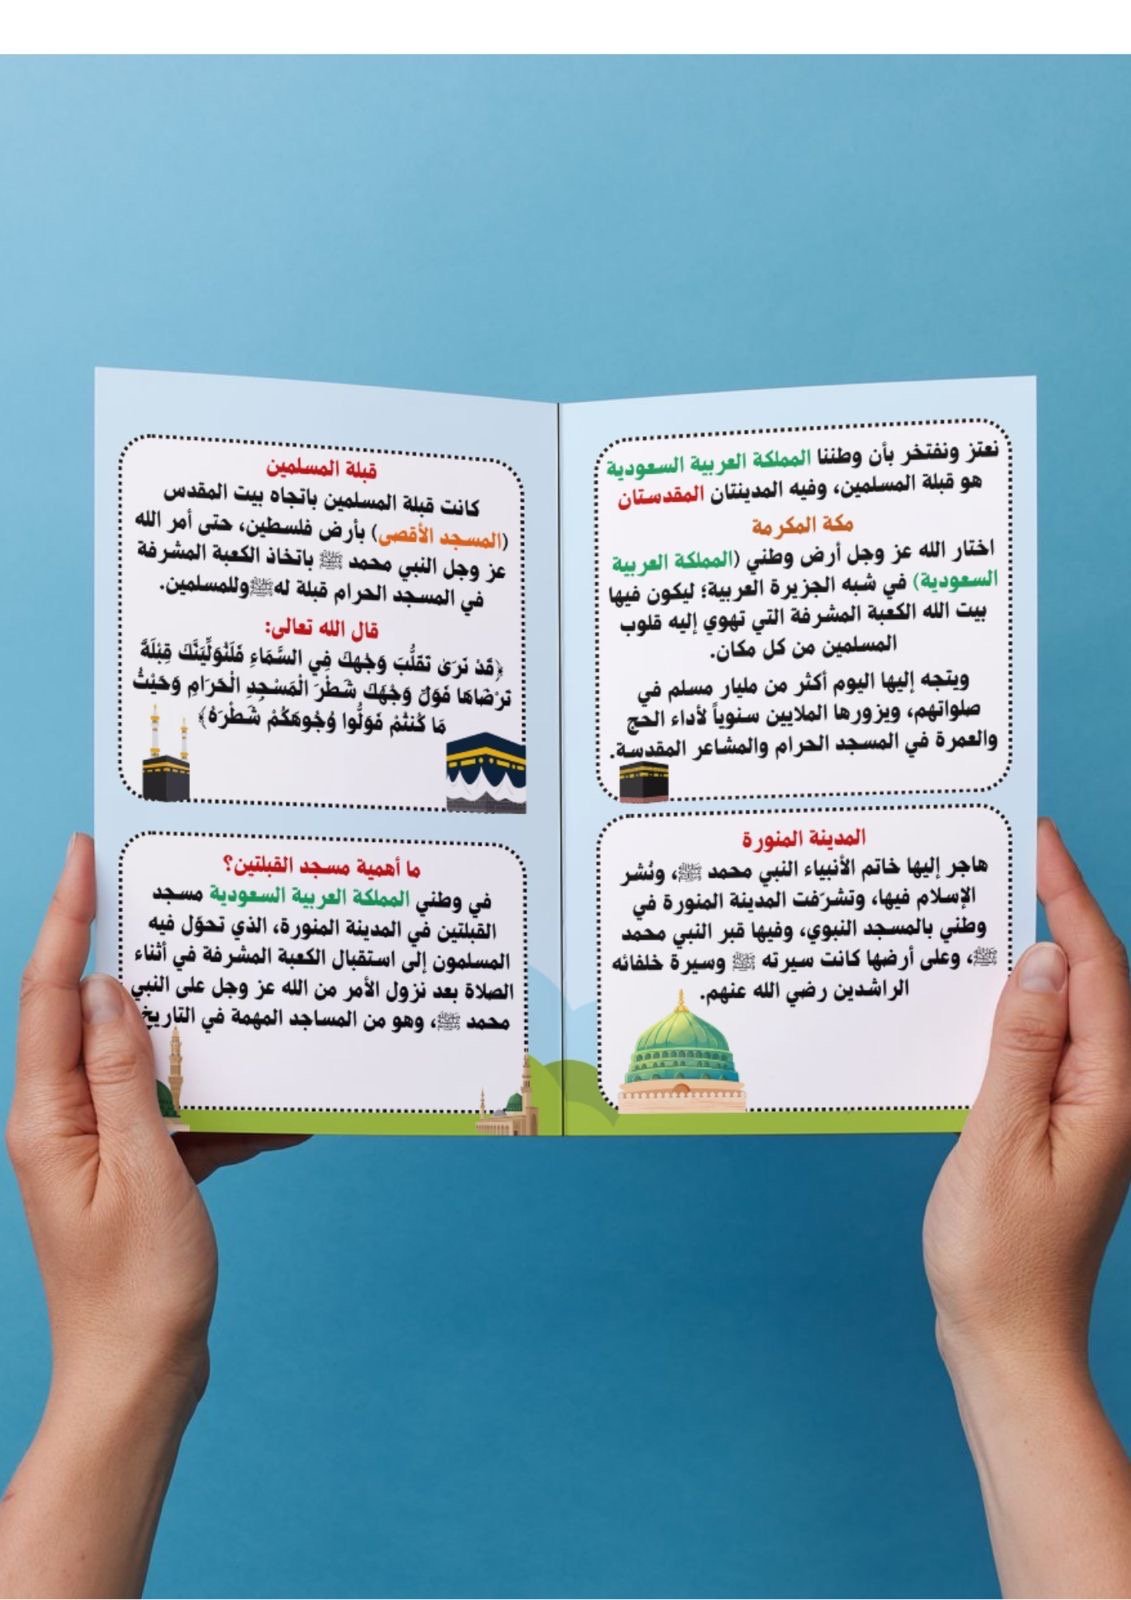 نعتز ونفتخر بأن وطننا المملكة العربية السعودية
هو قبلة المسلمين، وفيه المدينتان المقدستان
مكة المكرمة
اختار الله عز وجل أرض وطني (المملكة العربية
السعودية) في شبه الجزيرة العربية؛ ليكون فيها
بيت الله الكعبة المشرفة التي تهوي إليه قلوب
المسلمين من كل مكان.
ويتجه إليها اليوم أكثر من مليار مسلم في
صلواتهم، ويزورها الملايين سنوياً لأداء الحج
والعمرة في المسجد الحرام والمشاعر المقدسة.
المدينة المنورة
هاجر إليها خاتم الأنبياء النبي محمد ﷺ، ونُشر
الإسلام فيها، وتشرّفت المدينة المنورة في
وطني بالمسجد النبوي، وفيها قبر النبي محمد
ﷺ، وعلى أرضها كانت سيرته ﷺ وسيرة خلفائه
الراشدين رضي الله عنهم.
قبلة المسلمين
كانت قبلة المسلمين باتجاه بيت المقدس
(المسجد الأقصى) بأرض فلسطين، حتى أمر الله
عز وجل النبي محمد ﷺ باتخاذ الكعبة المشرفة
في المسجد الحرام قبلة لهﷺ وللمسلمين.
قال الله تعالى:
﴿قَدْ نَرَى تَقَلُّبَ وَجْهِكَ فِي السَّمَاءِ فَلَنُوَلِّيَنَّكَ قِبْلَةً
تَرْضَاهَا فَوَلِّ وَجْهَكَ شَطْرَ الْمَسْجِدِ الْحَرَامِ وَحَيْثُ
مَا كُنتُمْ فَوَلُّوا وُجُوهَكُمْ شَطْرَهُ﴾
ما أهمية مسجد القبلتين؟
في وطني المملكة العربية السعودية مسجد
القبلتين في المدينة المنورة، الذي تحوّل فيه
المسلمون إلى استقبال الكعبة المشرفة في أثناء
الصلاة بعد نزول الأمر من الله عز وجل على النبي
محمد ﷺ، وهو من المساجد المهمة في التاريخ